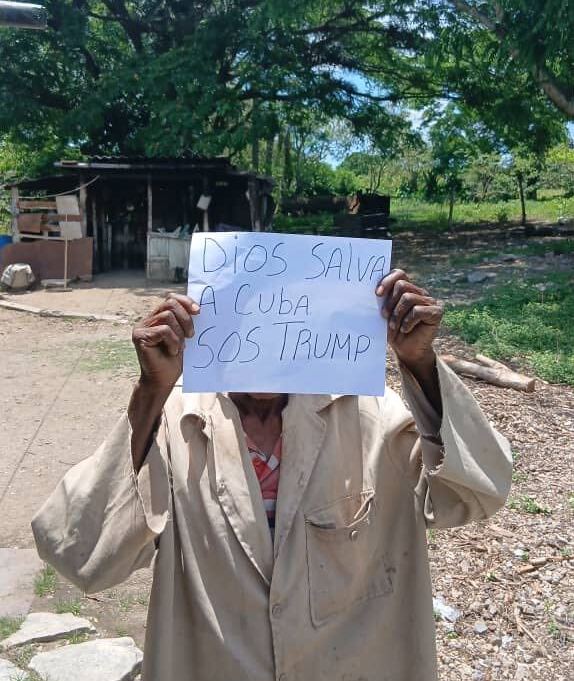 DIOS SALVA
A CUBA
SOS TRUMP